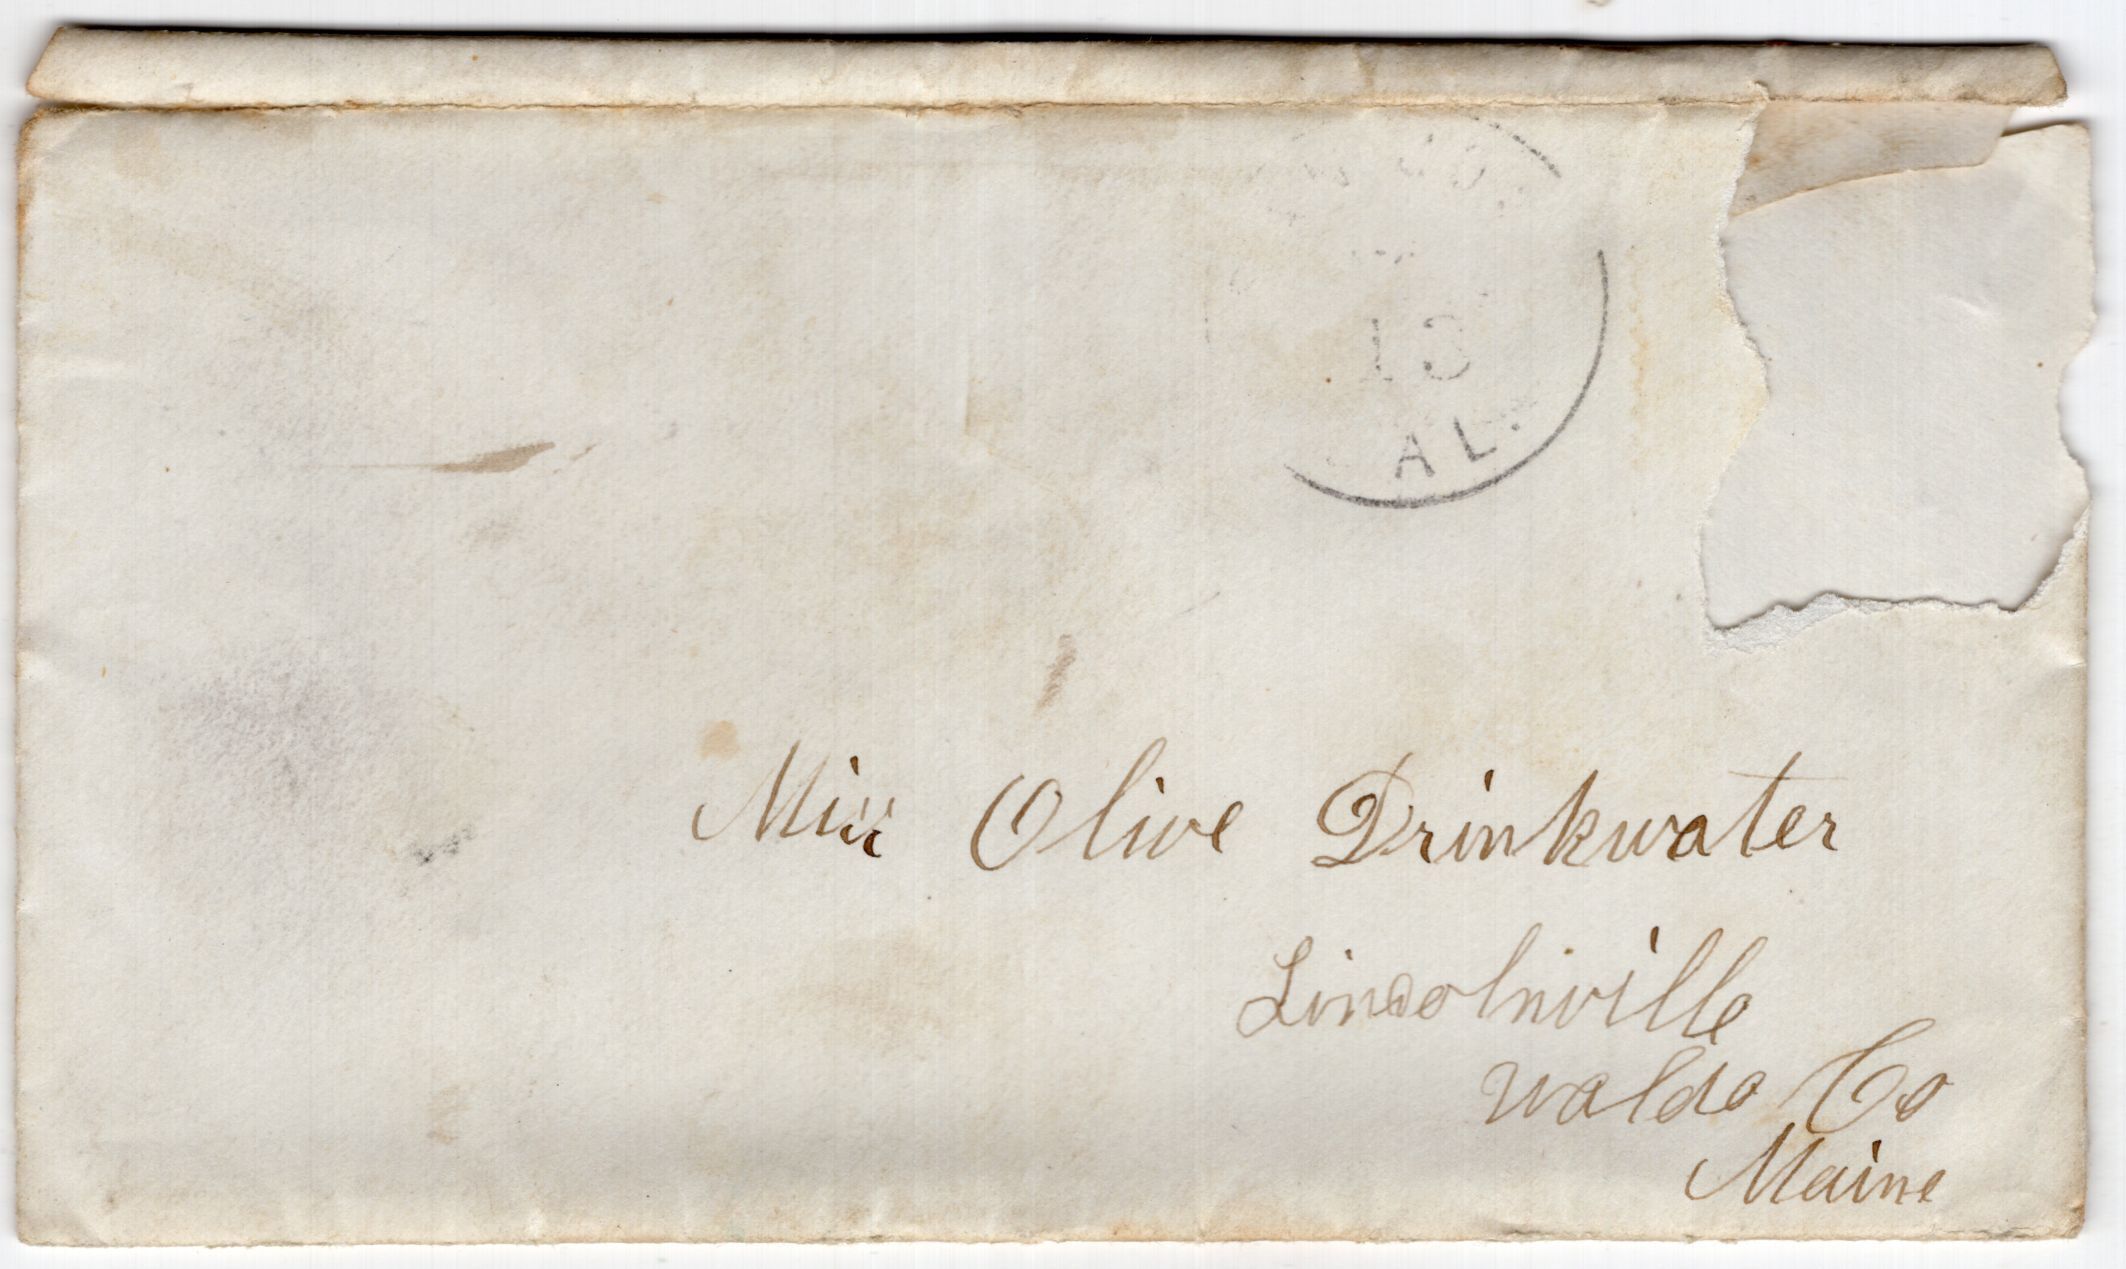 13
AL.
Miss Olive Drinkwater
Lincolnville
Waldo Co
Maine